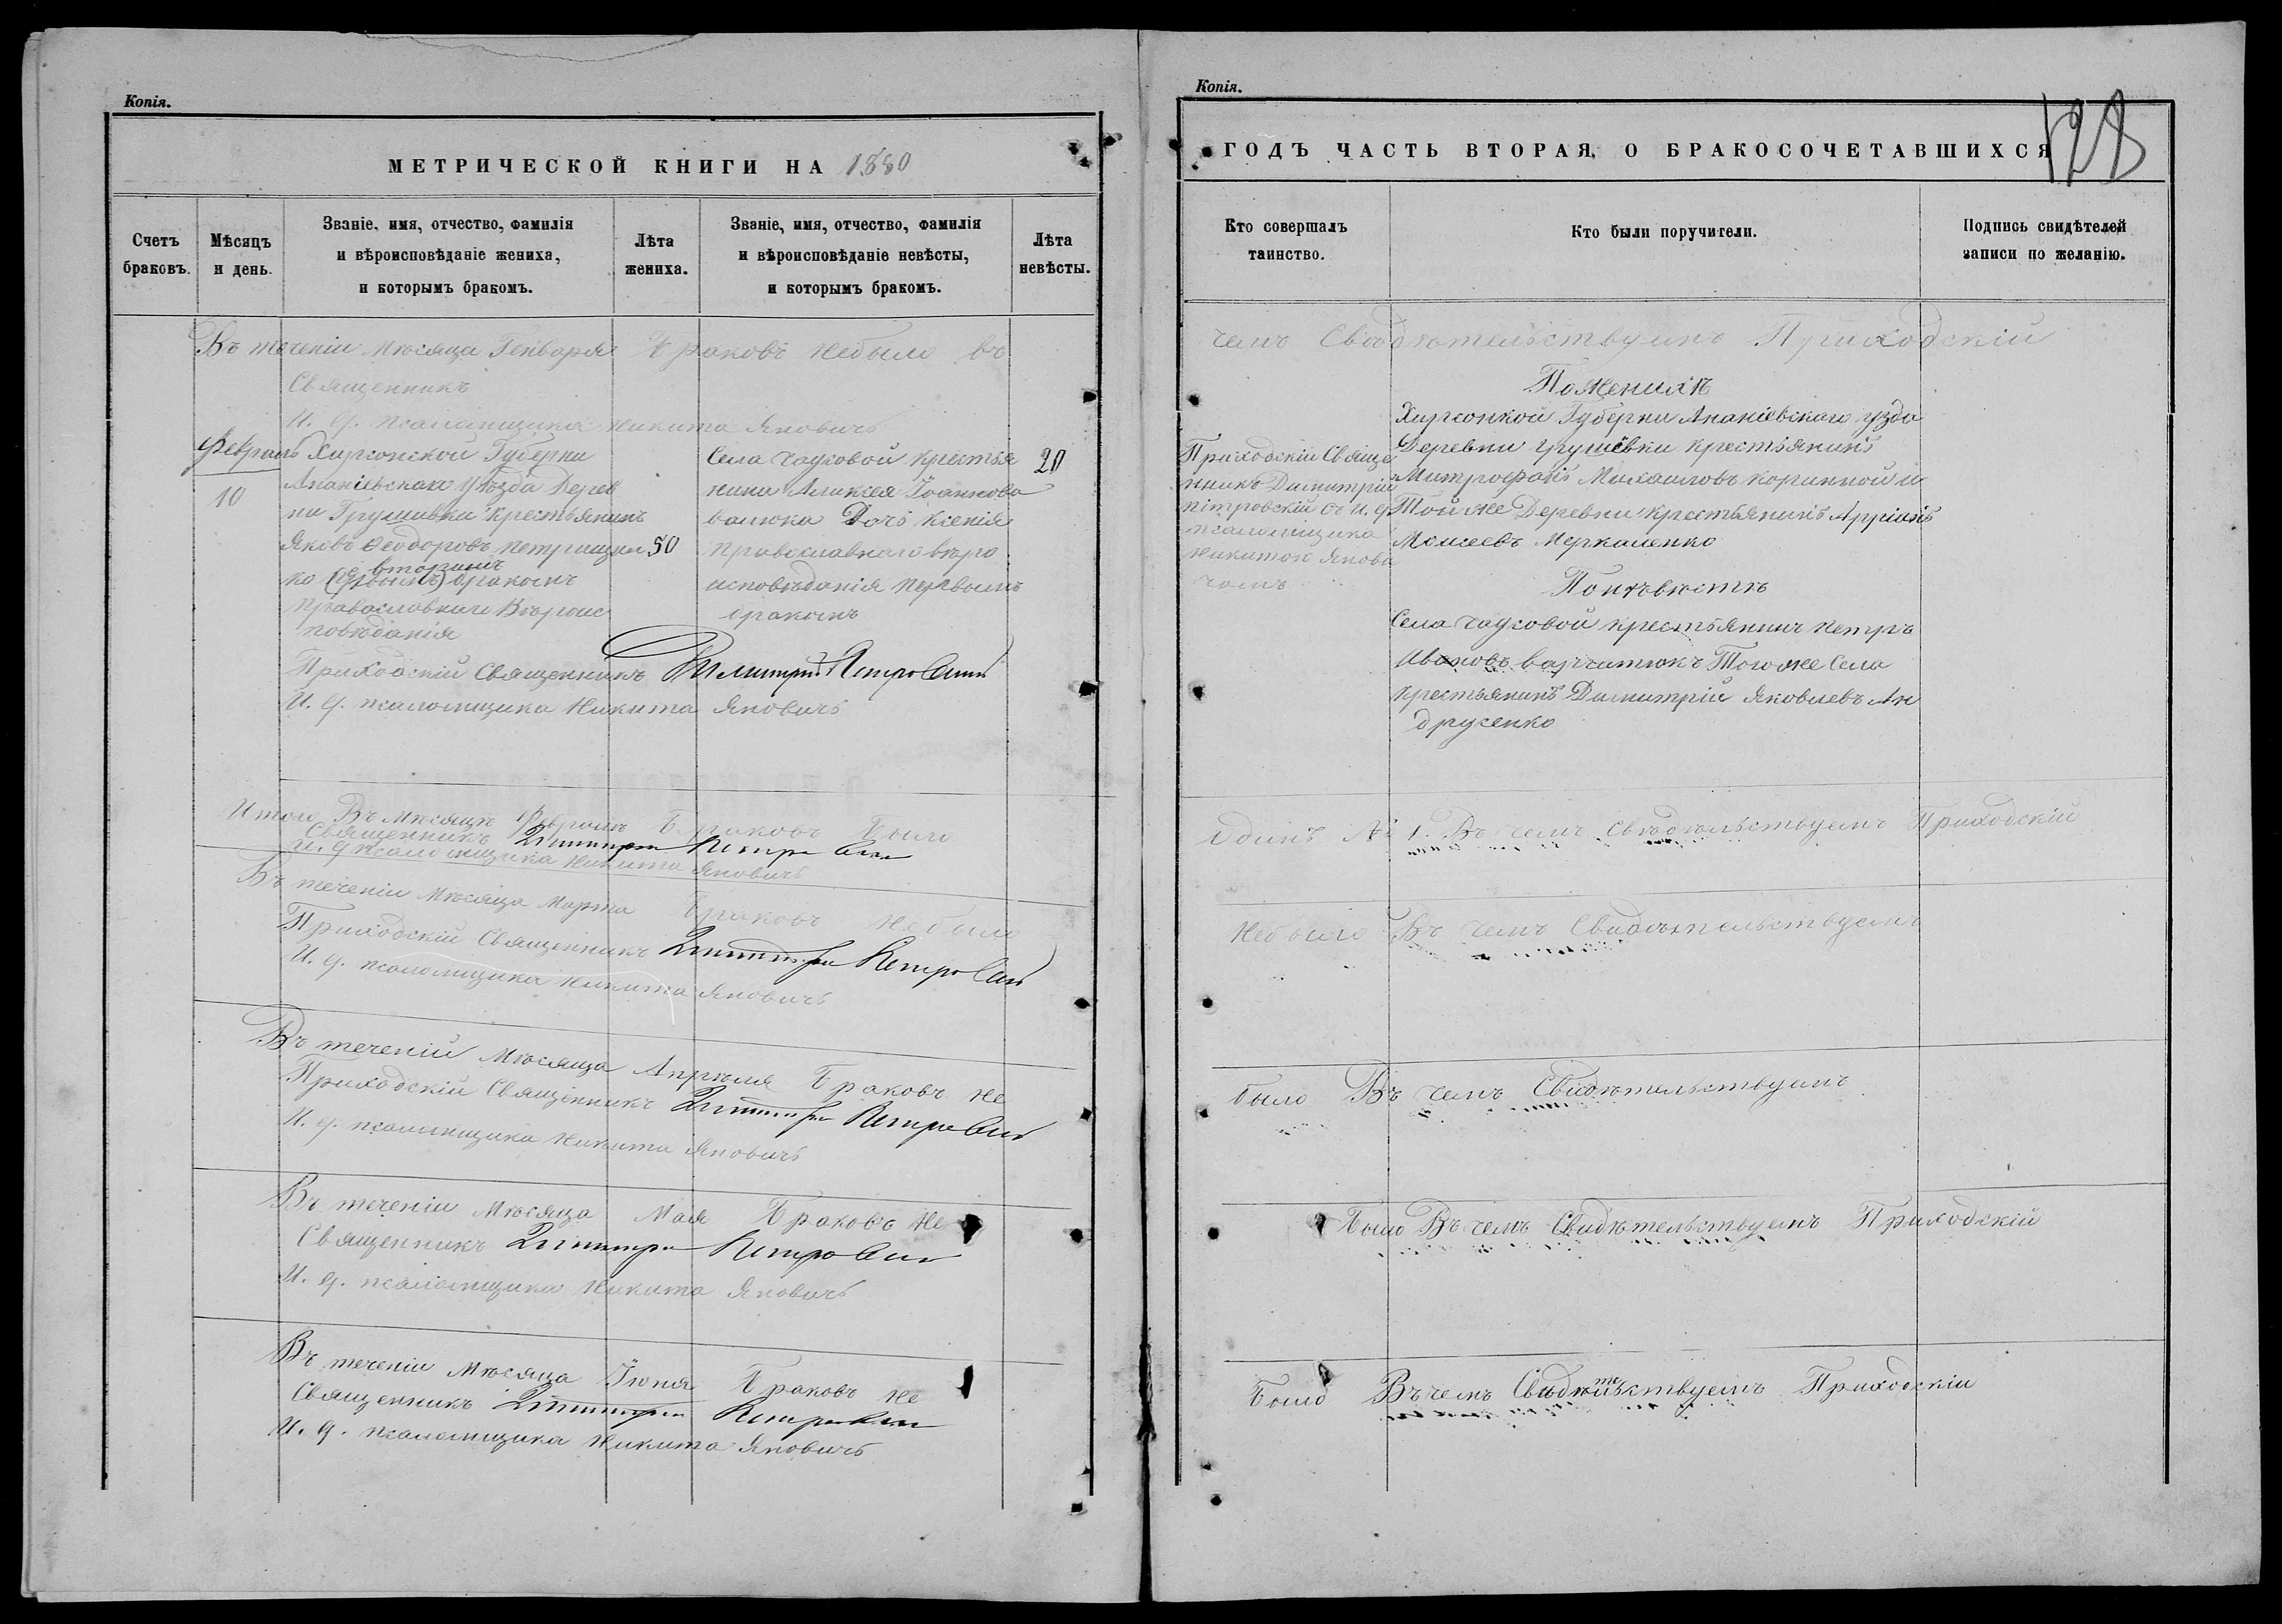 Копія.
МЕТРИЧЕСКОЙ КНИГИ НА 1880
Счетъ браковъ.
Мѣсяцъ и день.
Званіе, имя, отчество, фамилія и вѣроисповѣданіе жениха, и которымъ бракомъ.
Лѣта жениха.
Званіе, имя, отчество, фамилія и вѣроисповѣданіе невѣсты, и которымъ бракомъ.
Лѣта невѣсты.
Въ теченіи Мѣсяца Генваря Браковъ небыло въ
Священникъ
И. д. псаломщика Никита Яновичъ
Февраль
10
Херсонской Губерни
Ананіевскаго Уѣзда Дерев
ни Грушевки Крестьянинъ
Яковъ Феодоровъ Петрищен
ко вторымъ бракомъ
Православнаго Вѣроис
повѣданія
50
Села Чауковой Крестья
нина Алексея Іоаннова
Дочь Ксенія
Православнаго вѣро
исповѣданія первымъ
бракомъ
20
Приходскій Священникъ Димитрій Петровскій
И. д. псаломщика Никита Яновичъ
Итого Въ Мѣсяцѣ Февралѣ Браковъ Было
Священникъ Димитрій Петровскій
И. д. псаломщика Никита Яновичъ
Въ теченіи Мѣсяца Марта Браковъ Небыло
Приходскій Священникъ Димитрій Петровскій
И. д. псаломщика Никита Яновичъ
Въ теченій Мѣсяца Апрѣля Браковъ не
Приходскій Священникъ Димитрій Петровскій
И. д. псаломщика Никита Яновичъ
Въ теченіи Мѣсяца Мая Браковъ не
Священникъ Димитрій Петровскій
И. д. псаломщика Никита Яновичъ
Въ теченіи Мѣсяца Іюня Браковъ не
Священникъ Димитрій Петровскій
И. д. псаломщика Никита Яновичъ
Копія.
ГОДЪ ЧАСТЬ ВТОРАЯ, О БРАКОСОЧЕТАВШИХСЯ
128
Кто совершалъ таинство.
Кто были поручители.
Подпись свидѣтелей записи по желанію.
чемъ Свидѣтельствуемъ Приходскій
Приходскій Свяще
нникъ Димитрій
Пѣтровскій съ И. д.
псаломщика
Никитою Янови
чомъ
По Женихѣ
Херсонкой Губерни Ананіевскаго узда
Деревни Грушевки Крестьянинъ
Митрофанъ Михаиловъ Коринной и
Той же Деревни Крестьянинъ Арріанъ
Моисеевъ Меркаленко
По нѣвѣстѣ
Села Чауковой крестьянинъ Петръ
Ивановъ Тогоже Села
Крестьянинъ Димитрій Яковлевъ Ан
друсенко
Одинъ № 1. Въ чемъ Свидѣтельствуемъ Приходскій
Небыло Въ чемъ Свидѣтельствуемъ
было Въ чемъ Свидѣтельствуемъ
Было Въ чемъ Свидѣтельствуемъ Приходскій
Было Въ чемъ Свидѣтельствуемъ Приходскій